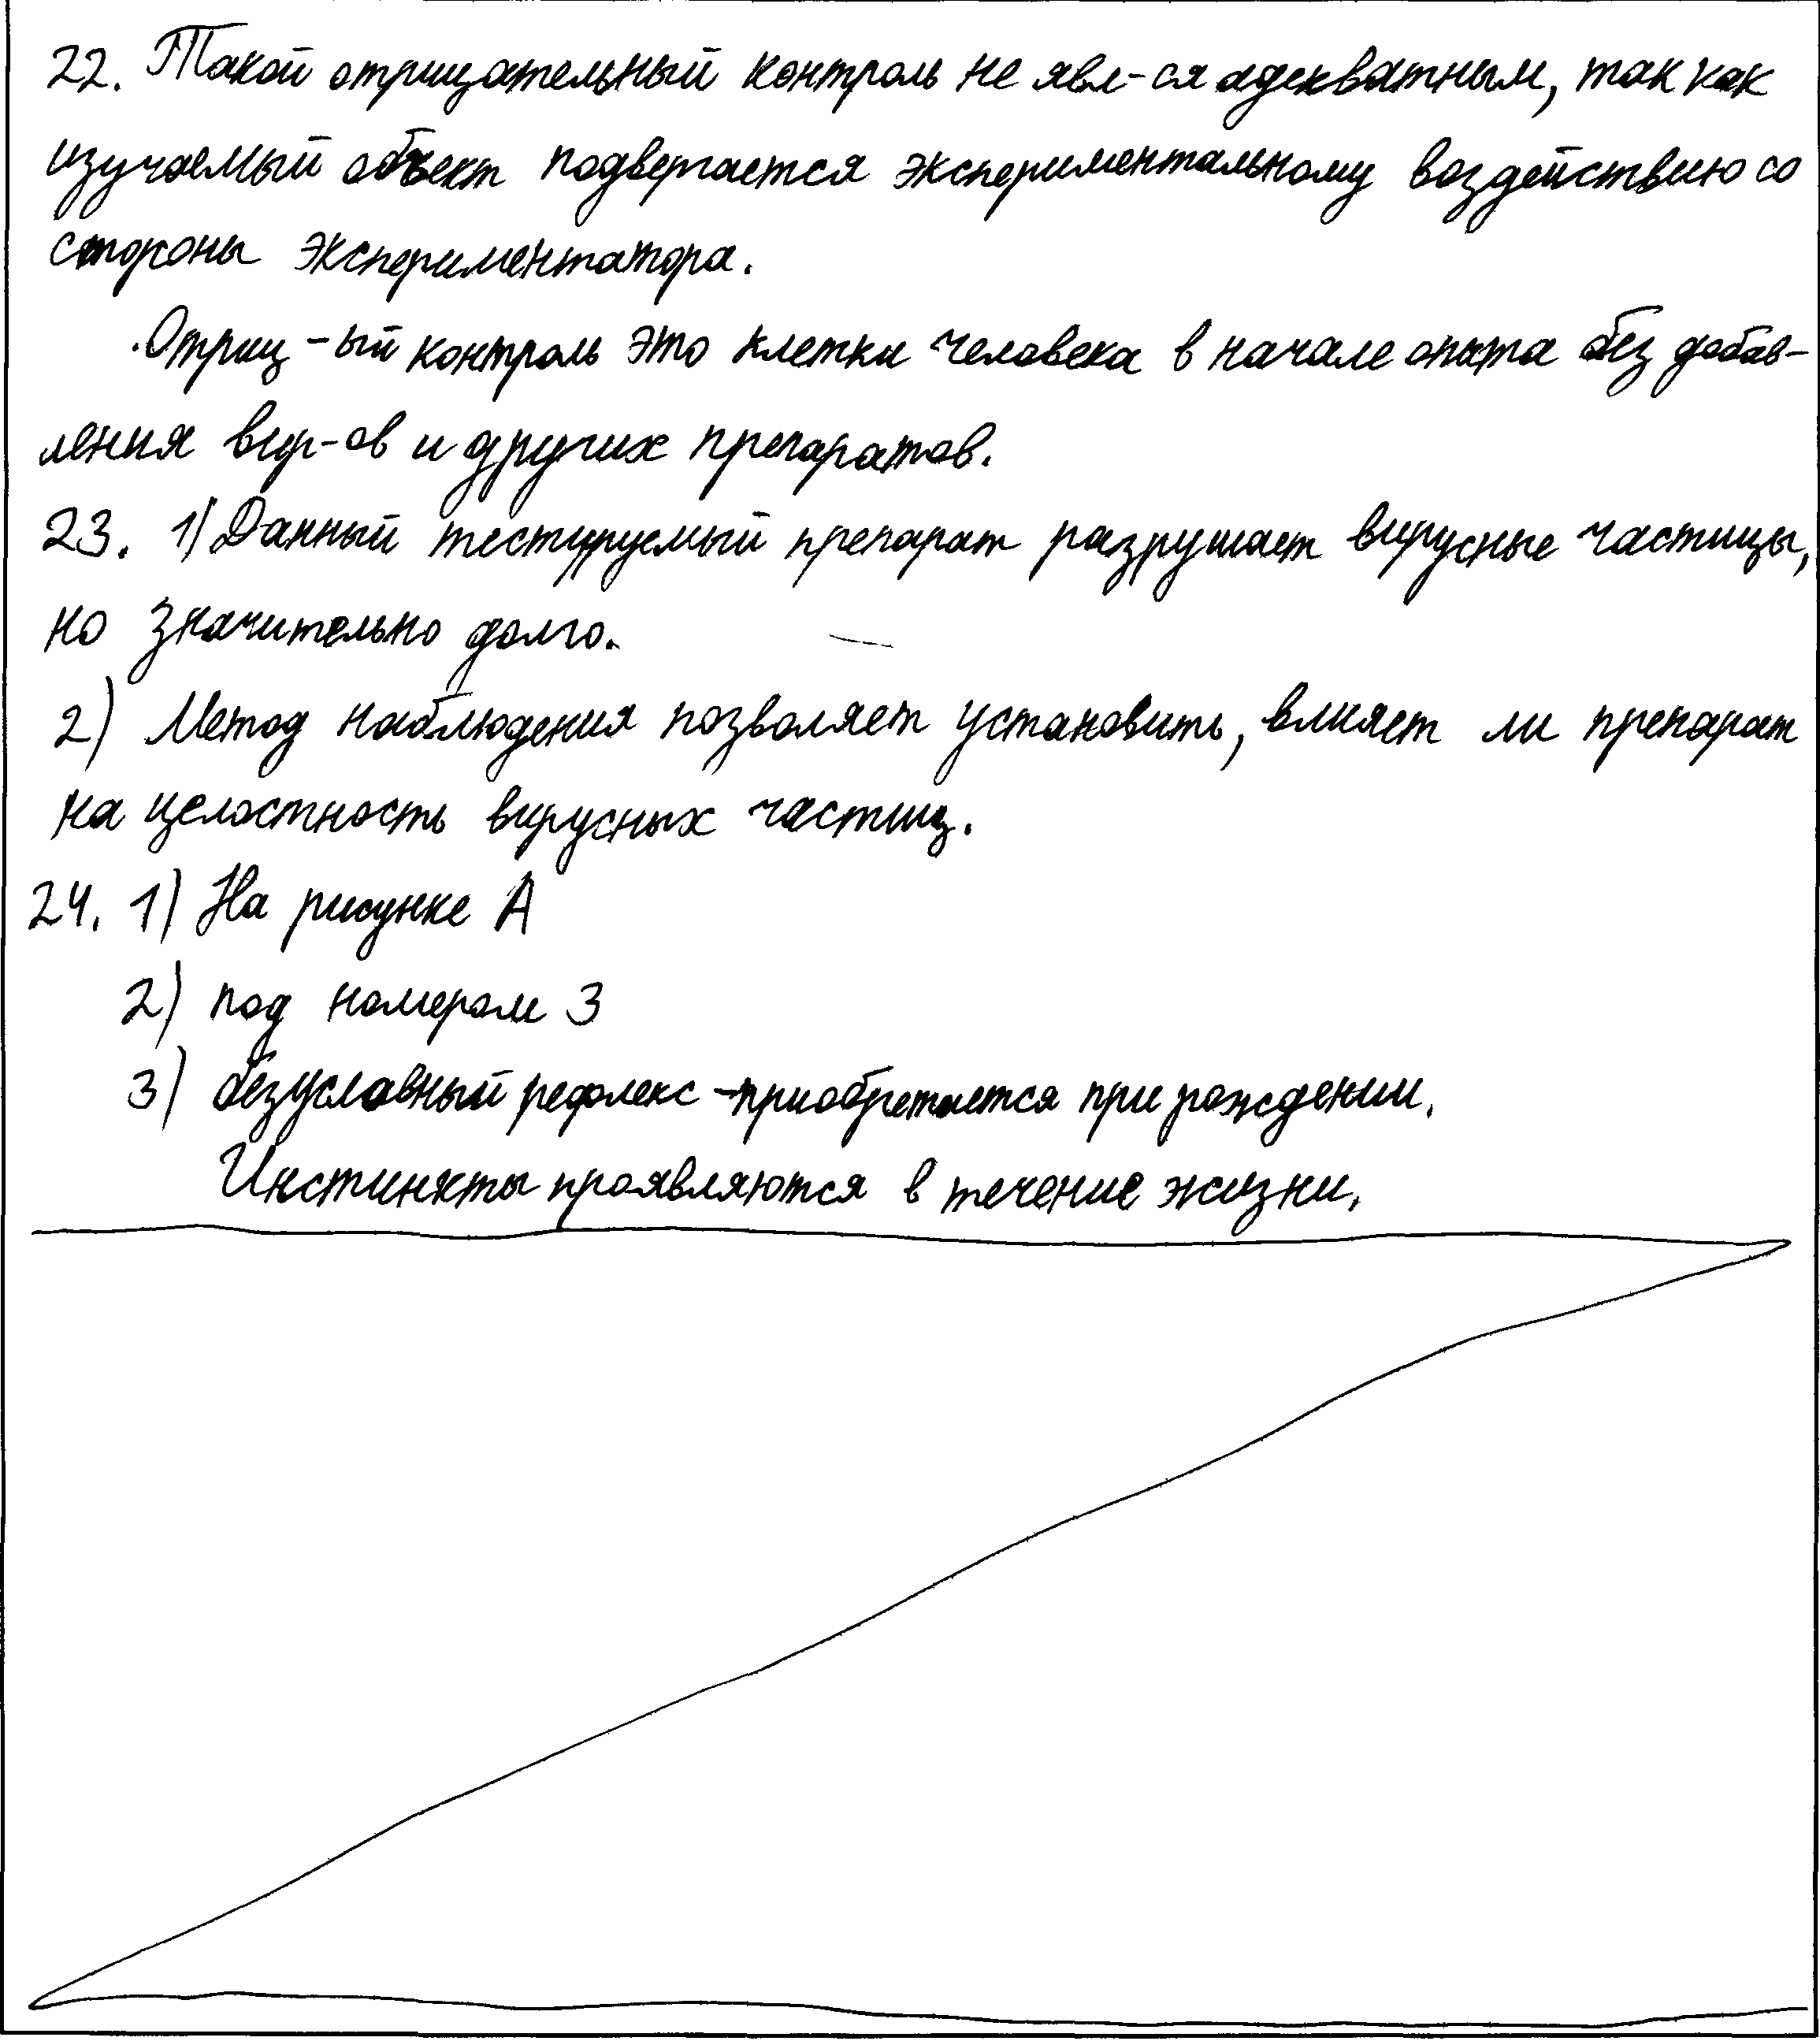 22. Такой отрицательный контроль не явл-ся адекватным, так как
изучаемый объект подвергается экспериментальному воздействию со
стороны экспериментатора.
Отриц-ый контроль это клетки человека в начале опыта без добав-
ления вир-ов и других препаратов.
23. 1) Данный тестируемый препарат разрушает вирусные частицы,
но значительно долго.
2) Метод наблюдения позволяет установить, влияет ли препарат
на целостность вирусных частиц.
24. 1) На рисунке А
2) под номером 3
3) безусловный рефлекс - приобретается при рождении.
Инстинкты проявляются в течение жизни.